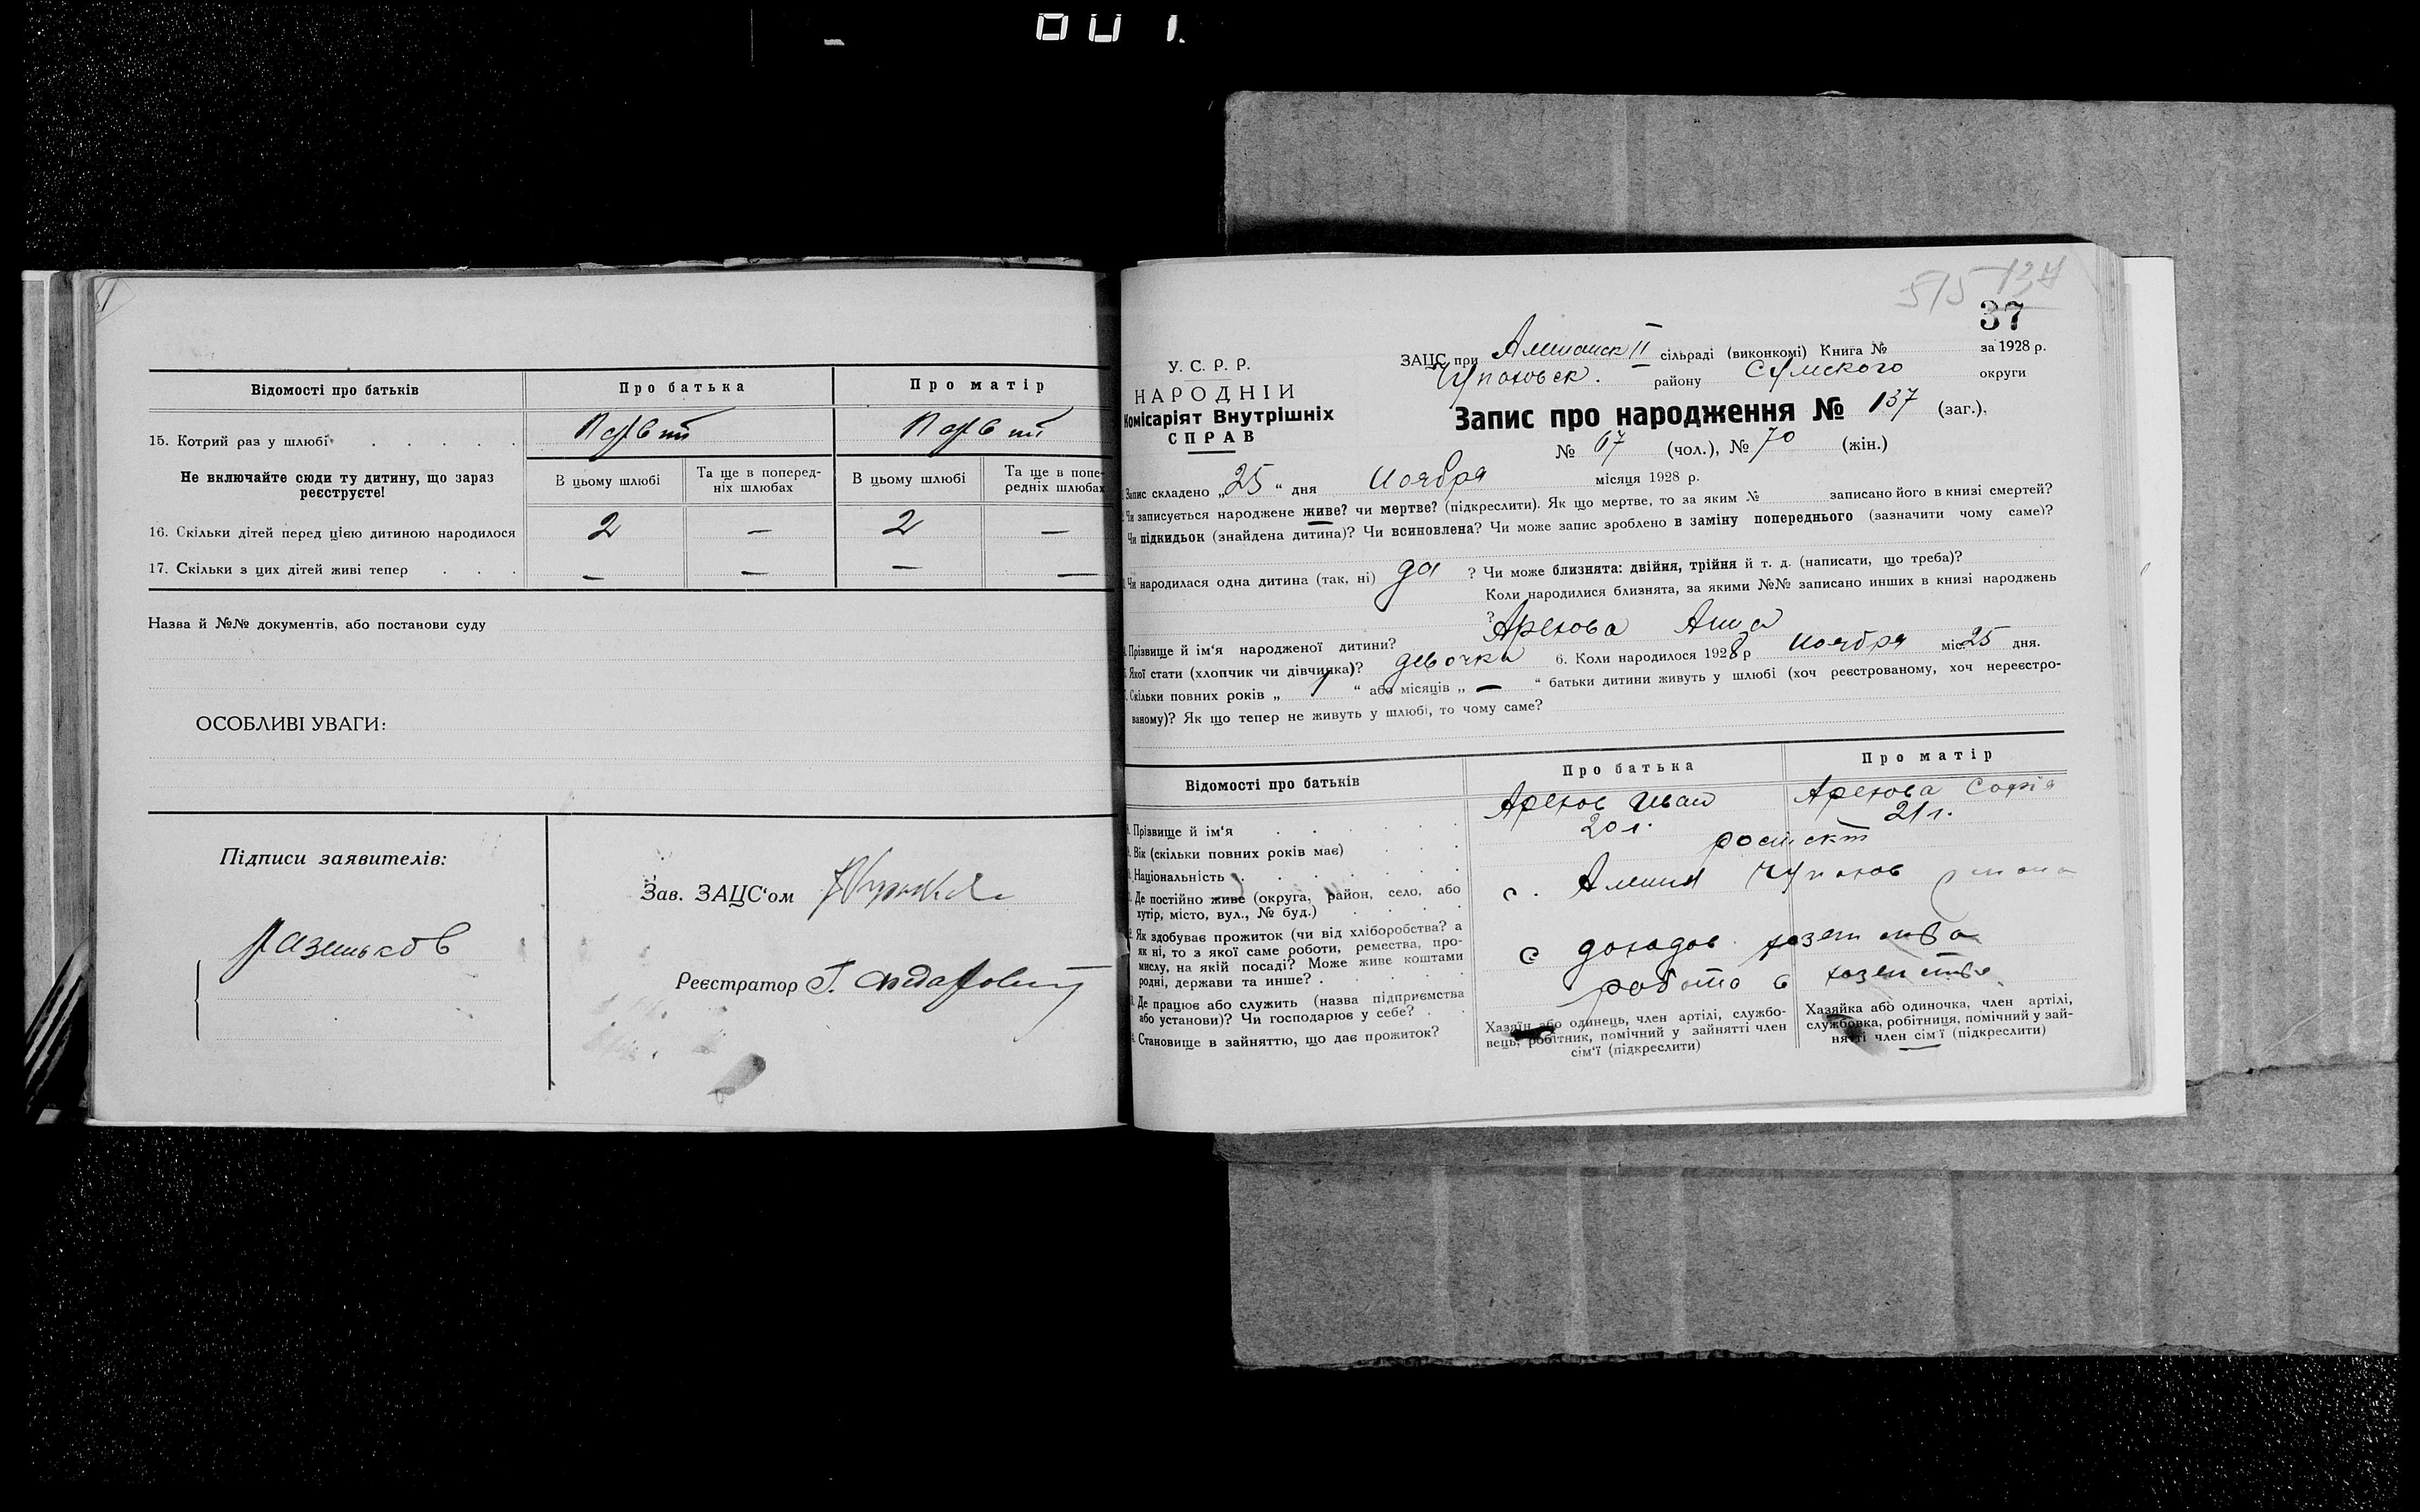 001.
Відомості про батьків
Про батька
Про матір
15. Котрий раз у шлюбі
Не включайте сюди ту дитину, що зараз
реєструєте!
В цьому шлюбі
Та ще в поперед-
ніх шлюбах
В цьому шлюбі
Та ще в попе-
редніх шлюбах
16. Скільки дітей перед цією дитиною народилося
2
—
2
—
17. Скільки з цих дітей живі тепер
—
—
—
—
Назва й №№ документів, або постанови суду
ОСОБЛИВІ УВАГИ:
Підписи заявителів:
Зав. ЗАЦС'ом
Реєстратор
37
У. С. Р. Р.
НАРОДНІЙ
Комісаріят Внутрішніх
СПРАВ
ЗАЦС при II сільраді (виконкомі) Книга № за 1928 р.
району Сумского округи
Запис про народження № 137 (заг.),
№ 67 (чол.), № 70 (жін.)
Запис складено „25“ дня Ноября місяця 1928 р.
Чи записується народжене живе? чи мертве? (підкреслити). Як що мертве, то за яким № записано його в книзі смертей?
Чи підкидьок (знайдена дитина)? Чи всиновлена? Чи може запис зроблено в заміну попереднього (зазначити чому саме)?
Чи народилася одна дитина (так, ні) да ? Чи може близнята: двійня, трійня й т. д. (написати, що треба)?
Коли народилися близнята, за якими №№ записано инших в книзі народжень
?
Прізвище й ім'я народженої дитини? Арехова Анна
Якої стати (хлопчик чи дівчинка)? девочка 6. Коли народилося 1928 р Ноября міс. 25 дня.
Скільки повних років „ 1 “ або місяців „ — “ батьки дитини живуть у шлюбі (хоч реєстрованому, хоч нереєстро-
ваному)? Як що тепер не живуть у шлюбі, то чому саме?
Відомості про батьків
Про батька
Про матір
Прізвище й ім'я
Арехов Иван
Арехова Софія
Вік (скільки повних років має)
20 л.
21 л.
Національність
Де постійно живе (округа, район, село, або
хутір, місто, вул., № буд.)
с.
Як здобуває прожиток (чи від хліборобства? а
як ні, то з якої саме роботи, ремества, про-
мислу, на якій посаді? Може живе коштами
родні, держави та инше?
с доходов хозяйства
Де працює або служить (назва підприємства
або установи)? Чи господарює у себе?
работа в хозяйстве
Становище в зайняттю, що дає прожиток?
Хазяїн або одинець, член артілі, службо-
вець, робітник, помічний у зайнятті член
сім'ї (підкреслити)
Хазяйка або одиночка, член артілі,
службовка, робітниця, помічний у зай-
нятті член сім'ї (підкреслити)